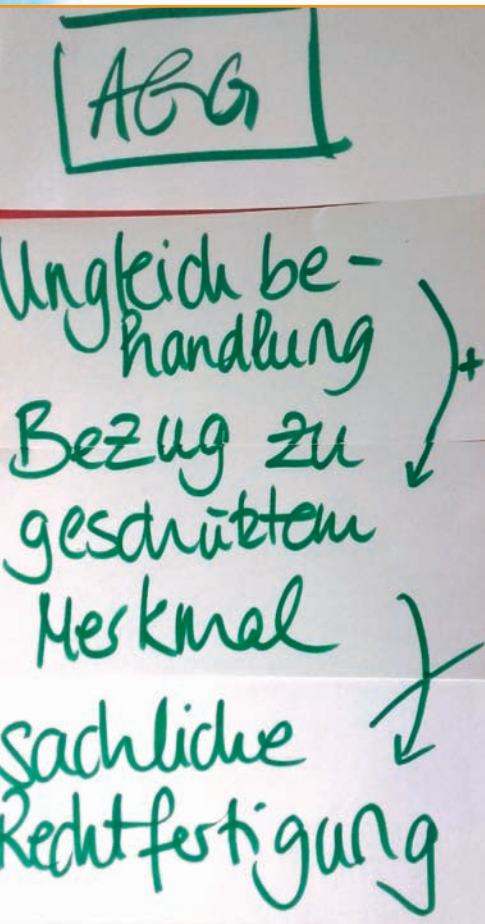 AGG
Ungleich be-
handlung
+
Bezug zu
geschütztem
Merkmal
sachliche
Rechtfertigung